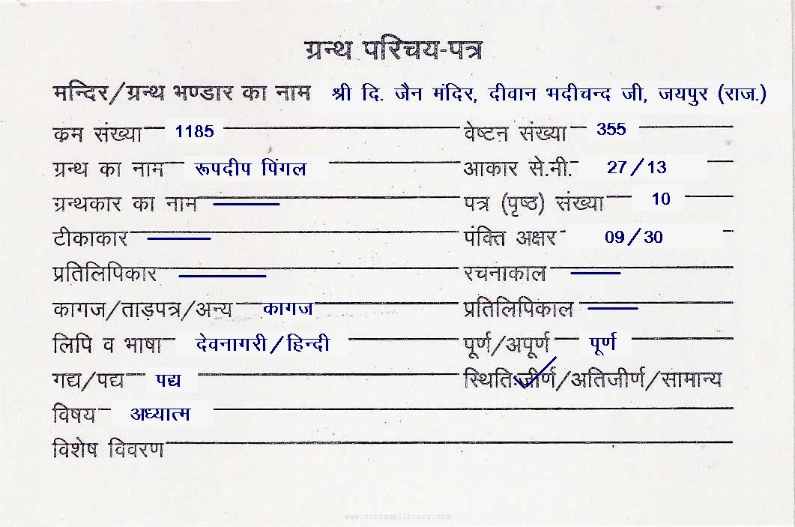 ग्रन्थ परिचय-पत्र
मन्दिर/ग्रन्थ भण्डार का नाम श्री दि. जैन मंदिर, दीवान भदीचन्द जी, जयपुर (राज.)
कम संख्या 1185 वेष्टन संख्या 355
ग्रन्थ का नाम रूपदीप पिंगल आकार से.मी. 27/13
ग्रन्थकार का नाम — पत्र (पृष्ठ) संख्या 10
टीकाकार — पंक्ति अक्षर 09/30
प्रतिलिपिकार — रचनाकाल —
कागज/ताड़पत्र/अन्य कागज प्रतिलिपिकाल —
लिपि व भाषा देवनागरी/हिन्दी पूर्ण/अपूर्ण पूर्ण
गद्य/पद्य पद्य स्थिति:जीर्ण/अतिजीर्ण/सामान्य
विषय अध्यात्म
विशेष विवरण
www.vitragelibrary.com